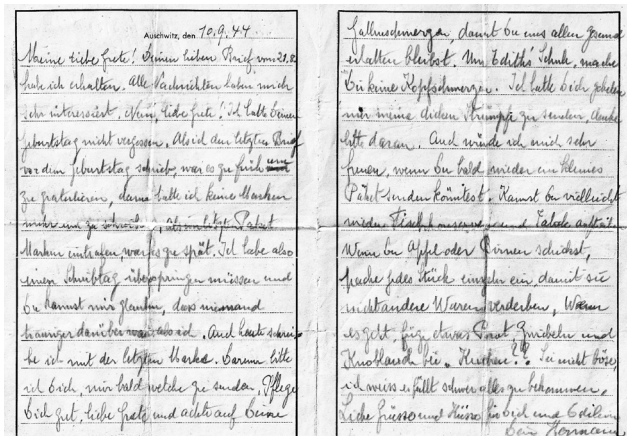 Auschwitz, den 10.9.44
Meine liebe Grete! Deinen lieben Brief vom 28.8.
habe ich erhalten. Alle Nachrichten haben mich
sehr interessiert. Nein, liebe Grete! Ich hatte Deinen
Geburtstag nicht vergessen. Als ich den letzten Brief
vor dem Geburtstag schrieb, war es zu früh um
zu gratulieren, dann hatte ich keine Marken
mehr um zu schreiben, als im letzten Paket
Marken eintrafen, war es zu spät. Ich habe also
einen Schreibtag überspringen müssen und
Du kannst mir glauben, dass niemand
trauriger darüber war als ich. Auch heute schrei-
be ich mit der letzten Marke. Darum bitte
ich Dich, mir bald welche zu senden. Pflege
Dich gut, liebe Grete und achte auf Deine
Gallenschmerzen, damit Du uns allen gesund
erhalten bleibst. Um Ediths Schule, mache
Dir keine Kopfschmerzen. Ich hatte Dich gebeten
mir meine dicken Strümpfe zu senden, denke
bitte daran. Auch würde ich mich sehr
freuen, wenn Du bald wieder ein kleines
Paket senden könntest. Kannst Du vielleicht
wieder Fischkonserven und Tabak
Wenn Du Äpfel oder Birnen schickst,
packe jedes Stück einzeln ein damit sie
nicht andere Waren verderben. Wenn
es geht, füge etwas Brot Zwiebeln und
Knoblauch bei. Kuchen?? Sei nicht böse,
ich weiss es fällt schwer alles zu bekommen.
Liebe Grüsse und Küsse für Dich und
Dein Hermann